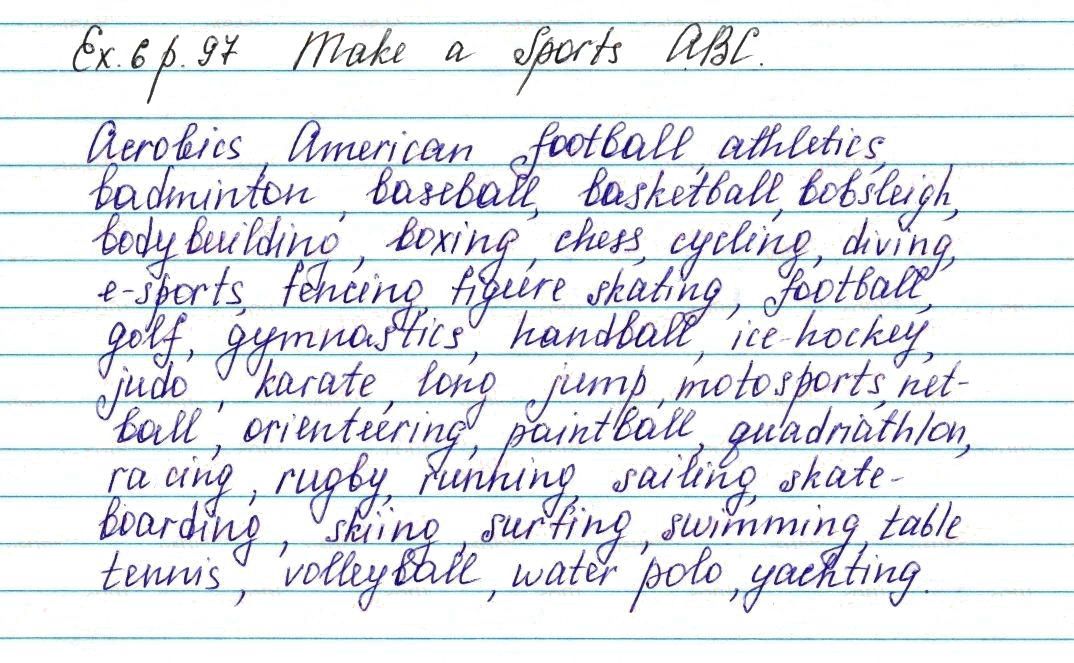 Ex. 6 p. 97 Make a Sports ABC.
Aerobics, American football, athletics,
badminton, baseball, basketball, bobsleigh,
bodybuilding, boxing, chess, cycling, diving,
e-sports, fencing, figure skating, football,
golf, gymnastics, handball, ice-hockey,
judo, karate, long jump, motosports, net-
ball, orienteering, paintball, quadriathlon,
racing, rugby, running, sailing, skate-
boarding, skiing, surfing, swimming, table
tennis, volleyball, water polo, yachting.